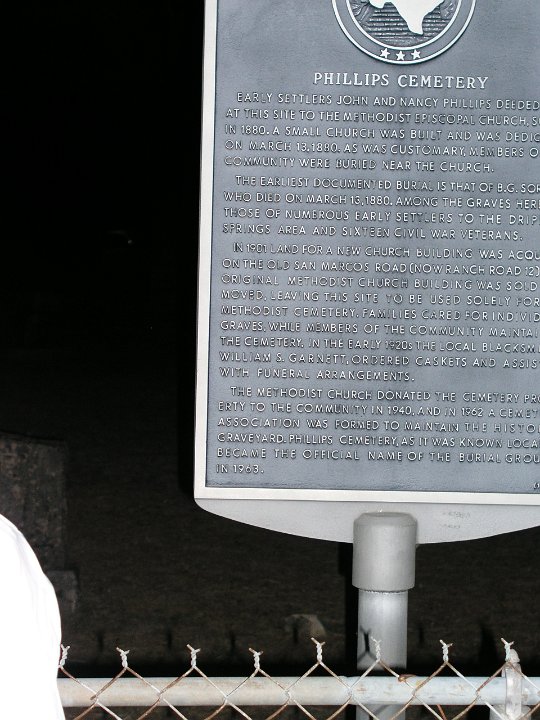 PHILLIPS CEMETERY
EARLY SETTLERS JOHN AND NANCY PHILLIPS DEEDED
AT THIS SITE TO THE METHODIST EPISCOPAL CHURCH,
IN 1880. A SMALL CHURCH WAS BUILT AND WAS
ON MARCH 13, 1880. AS WAS CUSTOMARY, MEMBERS
COMMUNITY WERE BURIED NEAR THE CHURCH.
THE EARLIEST DOCUMENTED BURIAL IS THAT OF B.G.
WHO DIED ON MARCH 13, 1880. AMONG THE GRAVES
THOSE OF NUMEROUS EARLY SETTLERS TO THE
SPRINGS AREA AND SIXTEEN CIVIL WAR VETERANS.
IN 1901 LAND FOR A NEW CHURCH BUILDING WAS
ON THE OLD SAN MARCOS ROAD (NOW RANCH ROAD 12)
ORIGINAL METHODIST CHURCH BUILDING WAS SOLD
MOVED, LEAVING THIS SITE TO BE USED SOLELY FOR
METHODIST CEMETERY. FAMILIES CARED FOR
GRAVES, WHILE MEMBERS OF THE COMMUNITY
THE CEMETERY. IN THE EARLY 1920s THE LOCAL
WILLIAM S. GARNETT, ORDERED CASKETS AND
WITH FUNERAL ARRANGEMENTS.
THE METHODIST CHURCH DONATED THE CEMETERY
ERTY TO THE COMMUNITY IN 1940, AND IN 1962 A
ASSOCIATION WAS FORMED TO MAINTAIN THE
GRAVEYARD. PHILLIPS CEMETERY, AS IT WAS KNOWN
BECAME THE OFFICIAL NAME OF THE BURIAL
IN 1963.